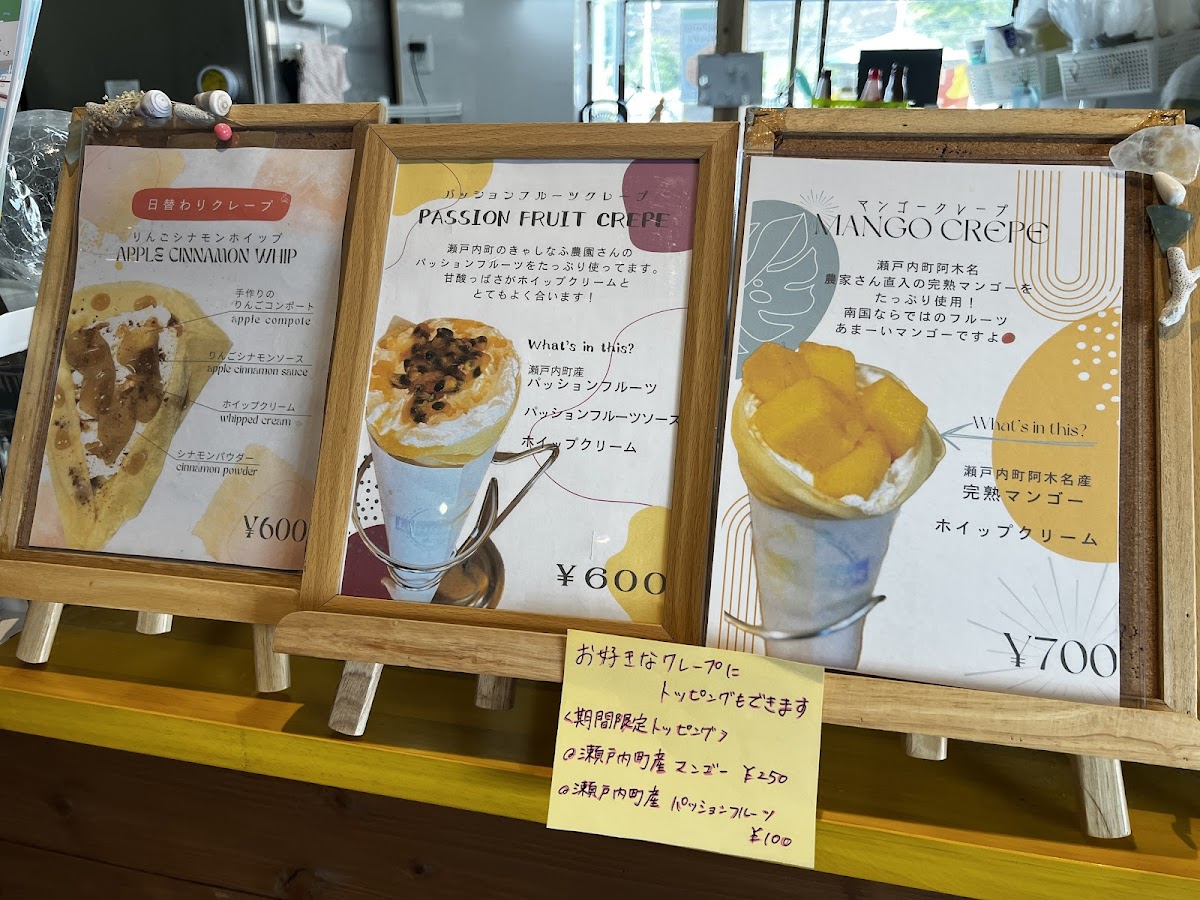 日替わりクレープ
りんごシナモンホイップ
APPLE CINNAMON WHIP
手作りの
りんごコンポート
apple compote
りんごシナモンソース
apple cinnamon sauce
ホイップクリーム
whipped cream
シナモンパウダー
cinnamon powder
¥600
パッションフルーツクレープ
PASSION FRUIT CREPE
瀬戸内町のきゃしなふ農園さんの
パッションフルーツをたっぷり使ってます。
甘酸っぱさがホイップクリームと
とてもよく合います！
What's in this?
瀬戸内町産
パッションフルーツ
パッションフルーツソース
ホイップクリーム
¥600
マンゴークレープ
MANGO CREPE
瀬戸内町阿木名
農家さん直入の完熟マンゴーを
たっぷり使用！
南国ならではのフルーツ
あまーいマンゴーですよ
What's in this?
瀬戸内町阿木名産
完熟マンゴー
ホイップクリーム
¥700
お好きなクレープに
トッピングもできます
<期間限定トッピング>
@瀬戸内町産 マンゴー ¥250
@瀬戸内町産 パッションフルーツ
¥100